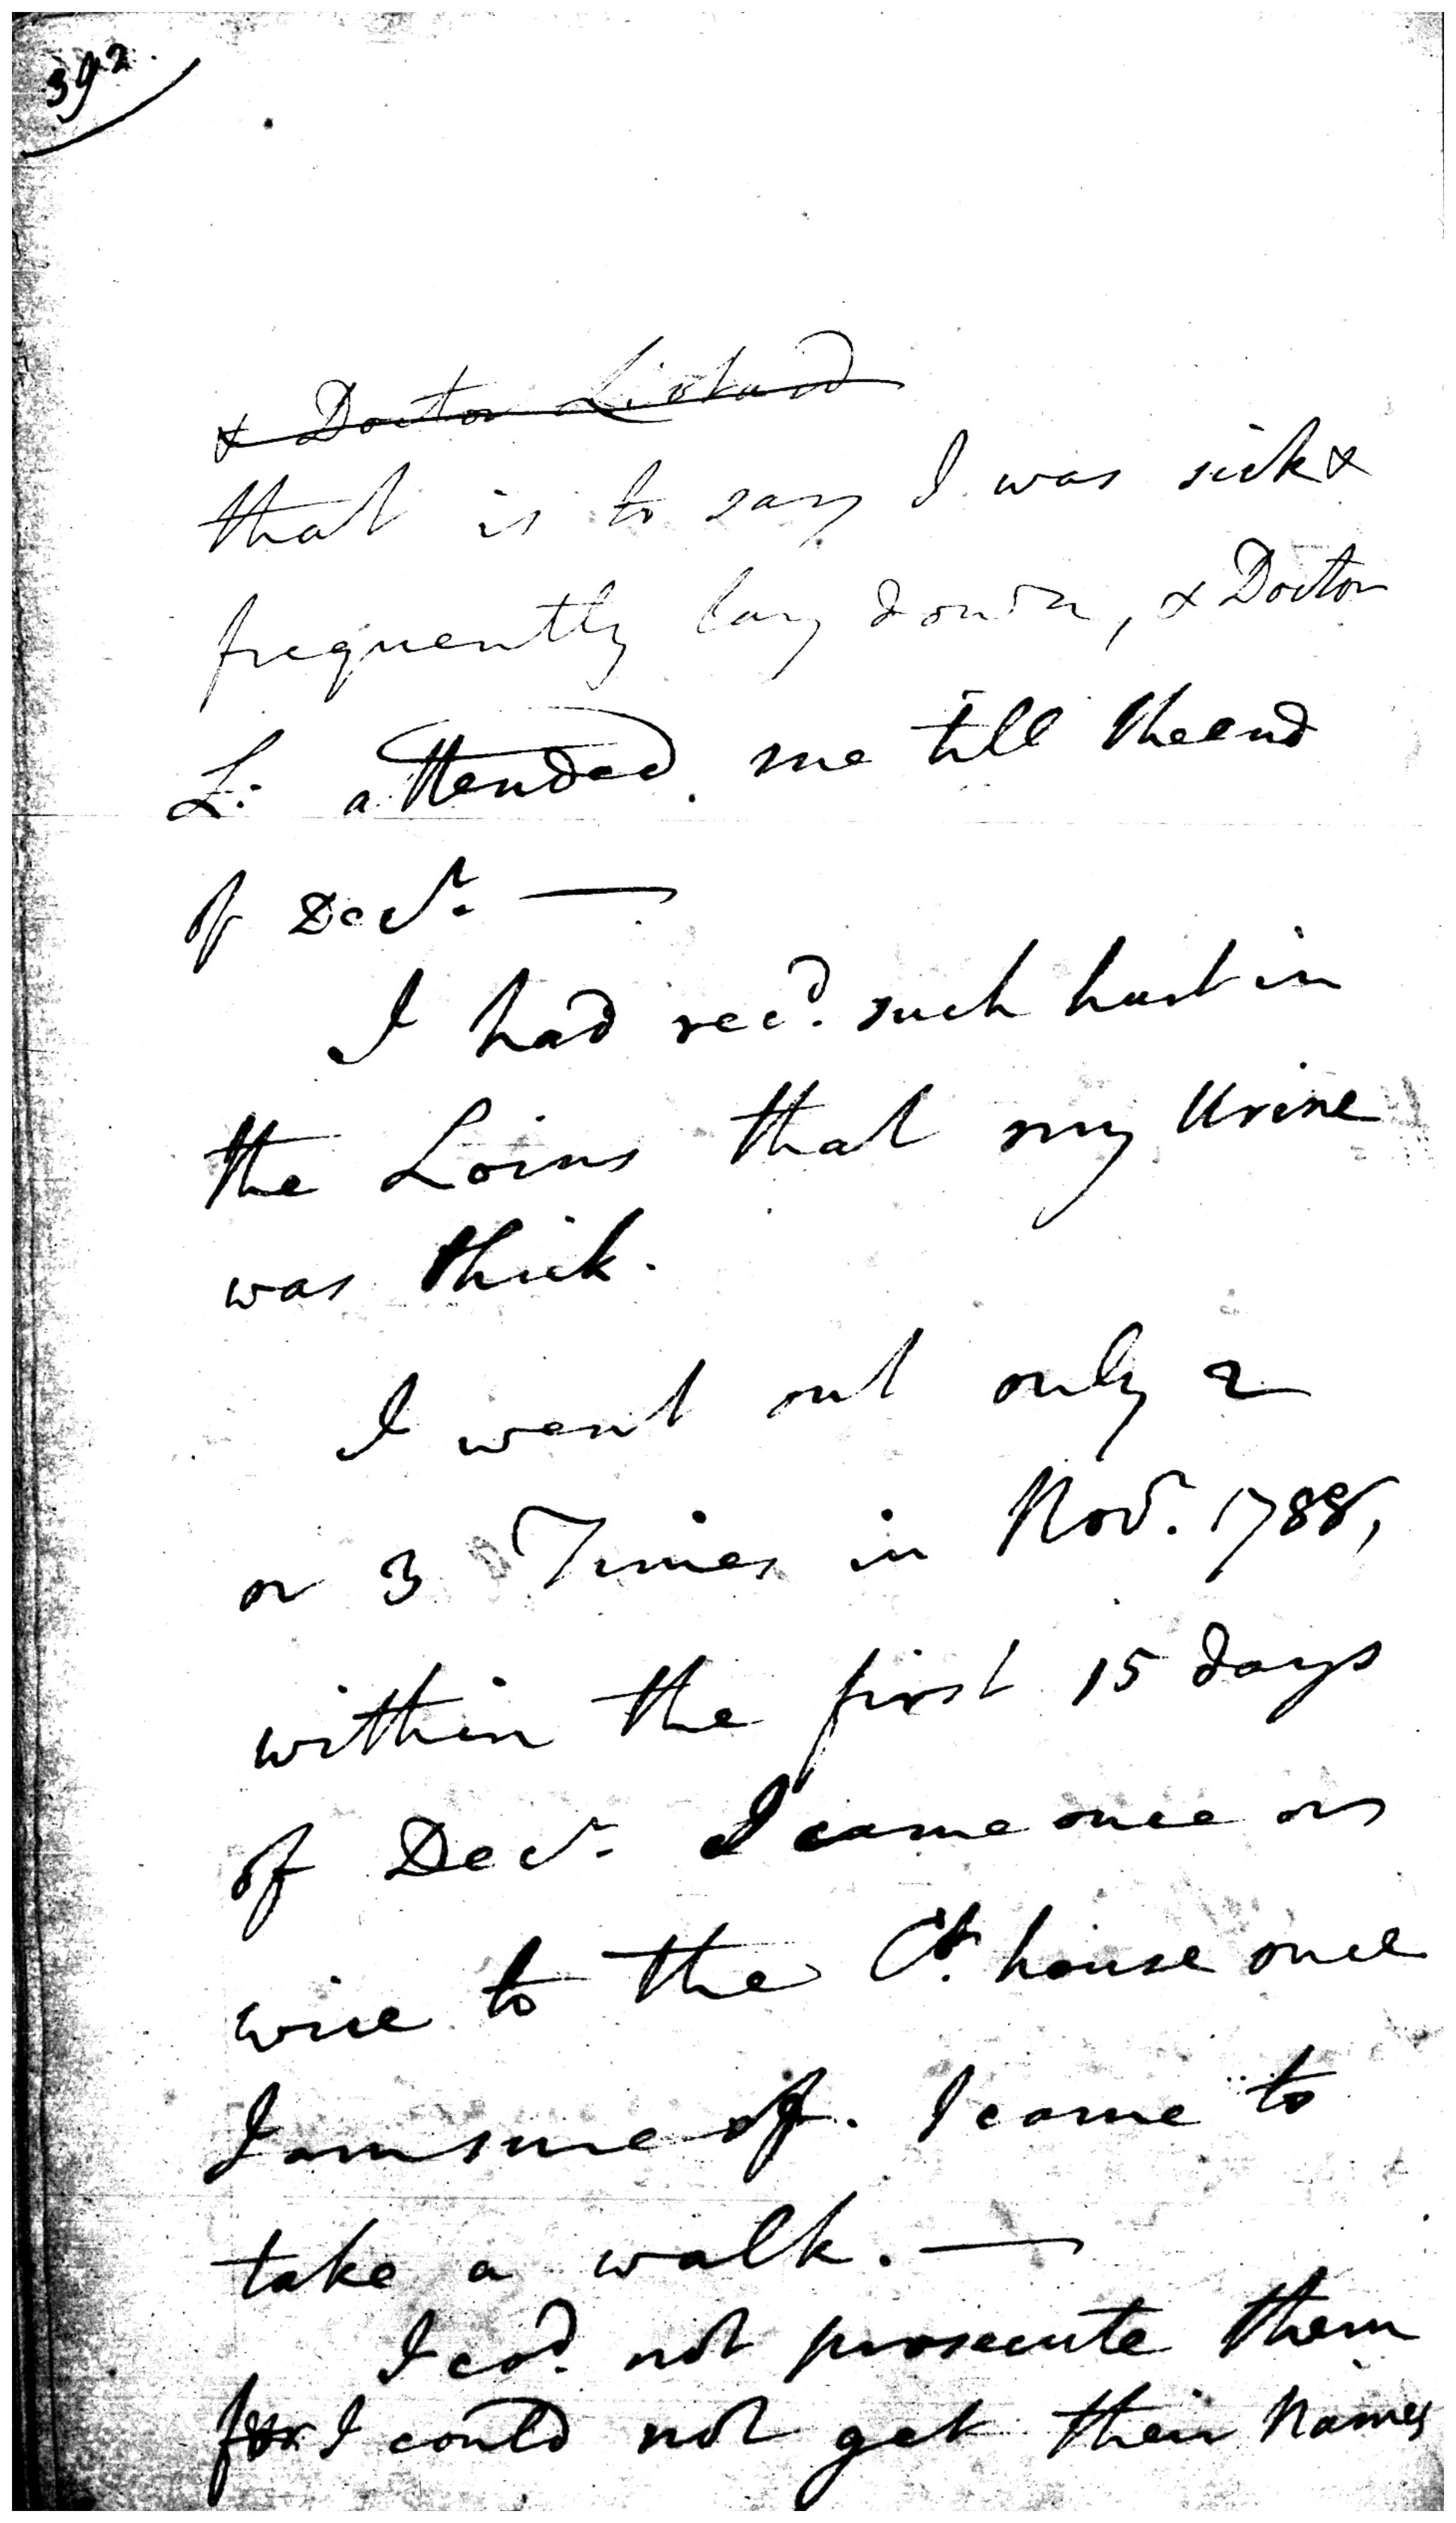 392.
& Doctor
that is to say I was sick &
frequently lay down, & Doctor
L: attended me till the end
of Decr. —
I had recd. such hurt in
the Loins that my Urine
was thick.
I went out only 2
or 3 Times in Novr. 1788,
within the first 15 days
of Decr. I came once or
wice to the Ct. house once
I am sure of. I came to
take a walk. —
I cod. not prosecute them
for I could not get their Names